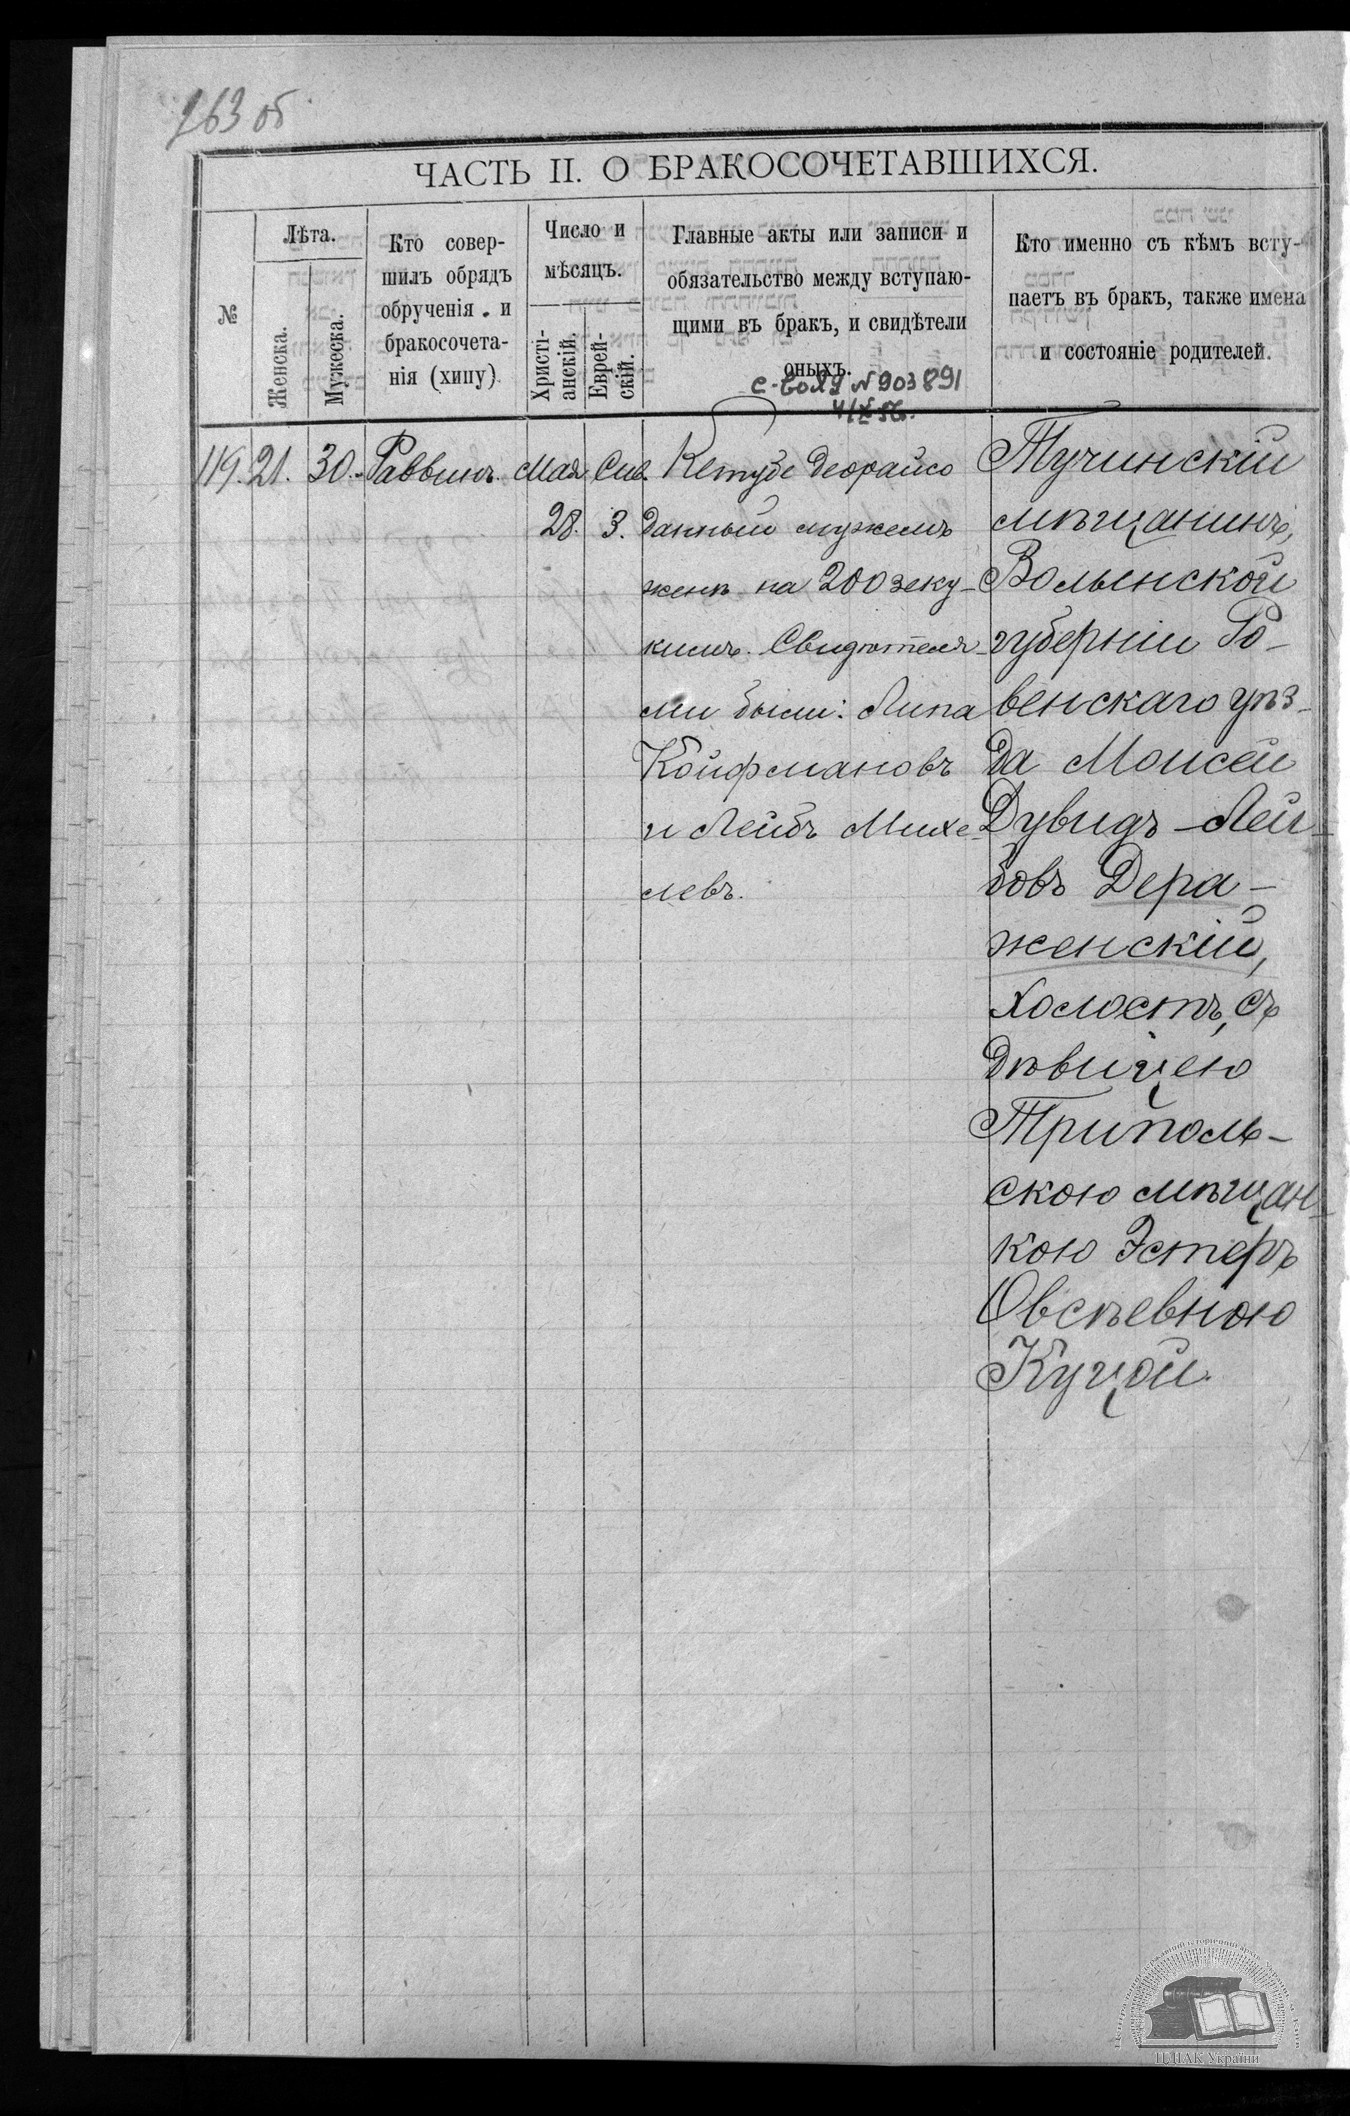 263 об
ЧАСТЬ II. О БРАКОСОЧЕТАВШИХСЯ.
№
Лѣта.
Женска.
Мужеска.
Кто совер-
шилъ обрядъ
обрученія и
бракосочета-
нія (хипу)
Число и
мѣсяцъ.
Христі-
анскій.
Еврей-
скій.
Главные акты или записи и
обязательство между вступаю-
щими въ бракъ, и свидѣтели
оныхъ.
N 903891
Кто именно съ кѣмъ всту-
паетъ въ бракъ, также имена
и состояніе родителей.
119. 21. 30. Раввинъ. Мая Сив.
28. 3.
Кетубе Деорайсо
данный мужемъ
женѣ на 200 зеку-
кимъ. Свидѣтеля-
ми были: Липа
Койфмановъ
и Лейбъ Михе-
левъ.
Тучинскій
мѣщанинъ,
Волынской
губерніи Ро-
венскаго уѣз-
да Моисей
Дувидъ-Лей-
бовъ Дера-
женскій,
холостъ, съ
дѣвицею
Триполь-
скою мѣщан-
кою Эстеръ
Овсѣевною
Куцой.
ЦДІАК України